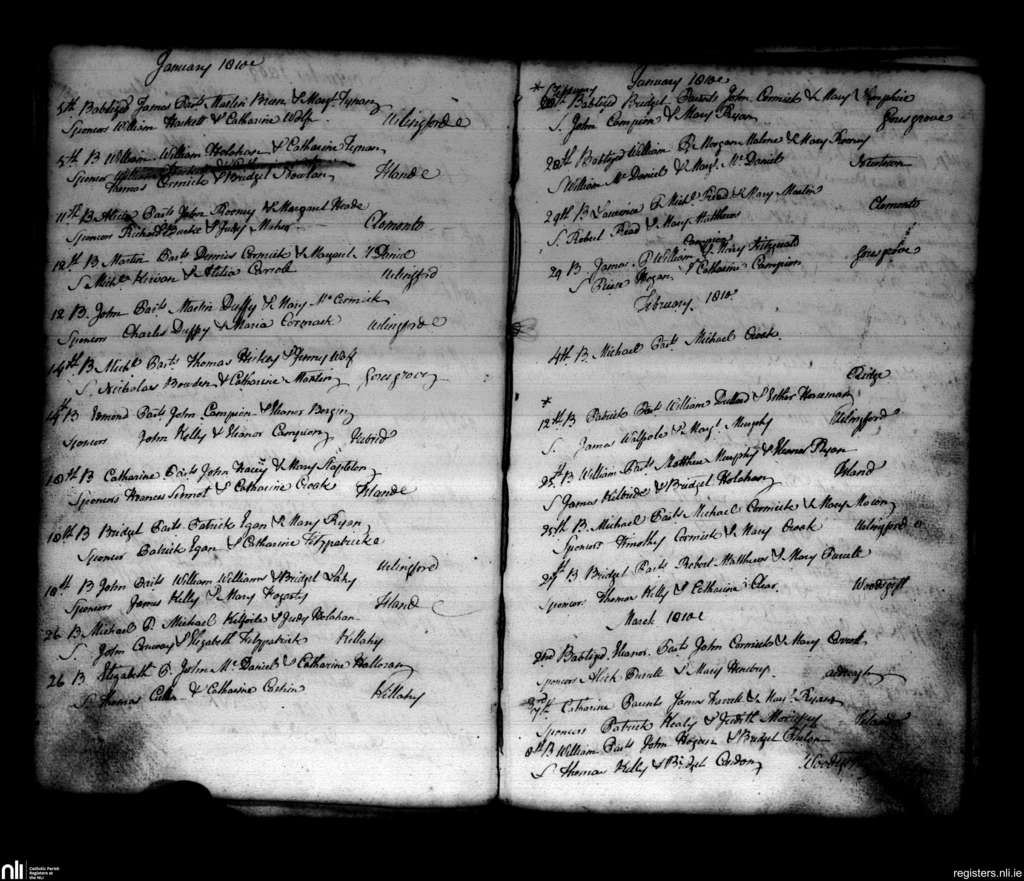 January 1810
5th Babtized James Parts Martin Brien & Margt. Tynan
Sponcors William Haskett & Catharine Wolf Urlingford
5th B William William Holohan & Catharine
Sponcor
Thomas Cormick & Bridget Nowlan Island
11th B Alicia Parts John Rooney & Margaret Heade
Sponcors Richard Burke & Judy Maher Clomonto
12th B Martin Parts Dennis Cormick & Margaret McDaniel
S. Michl. Kirwan & Alicia Carroll Urlingford
12 B. John Parts Martin Duffy & Mary McCormick
Sponcors Charles Duffy & Maria Cormack Urlingford
14th B Michl. Parts Thomas Hickey & Jenny Wolf
S. Nicholas Bowden & Catharine Martin Goresgrove
14th B Edmond Parts John Campion & Eleanor Bergin
Sponcors John Kelly & Eleanor Campion
18th B Catharine Parts John Tracey & Mary Stapleton
Sponcors Frances Sinnot & Catharine Croak Island
18th B Bridget Parts Patrick Egan & Mary Ryan
Sponcor Patrick Egan & Catharine Fitzpatrick
Urlingford
18th B John Parts William Williams & Bridget Lahy
Sponcors James Kelly & Mary Fogarty Island
26 B Michael P. Michael & Judy Holohan
S. John Conway & Elizabeth Fitzpatrick Killahy
26 B Elizabeth P. John McDaniel & Catharine Halloran
S. Thomas & Catharine Killahy
January 1810
* Babtized Bridget Parents John Cormick & Mary
S. John Campion & Mary Ryan Goresgrove
28th Babtized William P. Morgan Malone & Mary Rooney
S William McDaniel & Margt. McDaniel Newtown
29th B Laurence P. Michl. Read & Mary Martin
S. Robert Read & Mary Matthews Clomonto
Campion
29 B. James P. William & Mary Fitzgerald
S Pierce Hogan & Catharine Campion
February. 1810
4th. B. Michael Parts. Michael Croak.
*
12th B Patrick Parts William & Esther Horseman
S. James Walpole & Margt. Murphy Urlingford
25th B William Parts Matthew Murphy & Eleanor Ryan
S James Kilbride & Bridget Holohan Island
25th B. Michael Parts Michael Cormick & Mary Macon
Sponcors Timothy Cormick & Mary Croak Urlingford
27th B Bridget Parts Robert Matthews & Mary Purcell
Sponcors Thomas Kelly & Catharine Clear. Woodsgift
March 1810
2nd Babtized. Eleanor. Parts John Cormick & Mary Carroll
Sponcors Alick Purcell & Mary Henebry
7th Catharine Parents James Farrell & Margt. Ryan
Sponcors Patrick Healy & Judith Morrissey Island
8th B William Parts John Hogan & Bridget Phelan
S. Thomas Kelly & Bridget Woodsgift
nli
Catholic Parish
Registers at
the NLI
registers.nli.ie